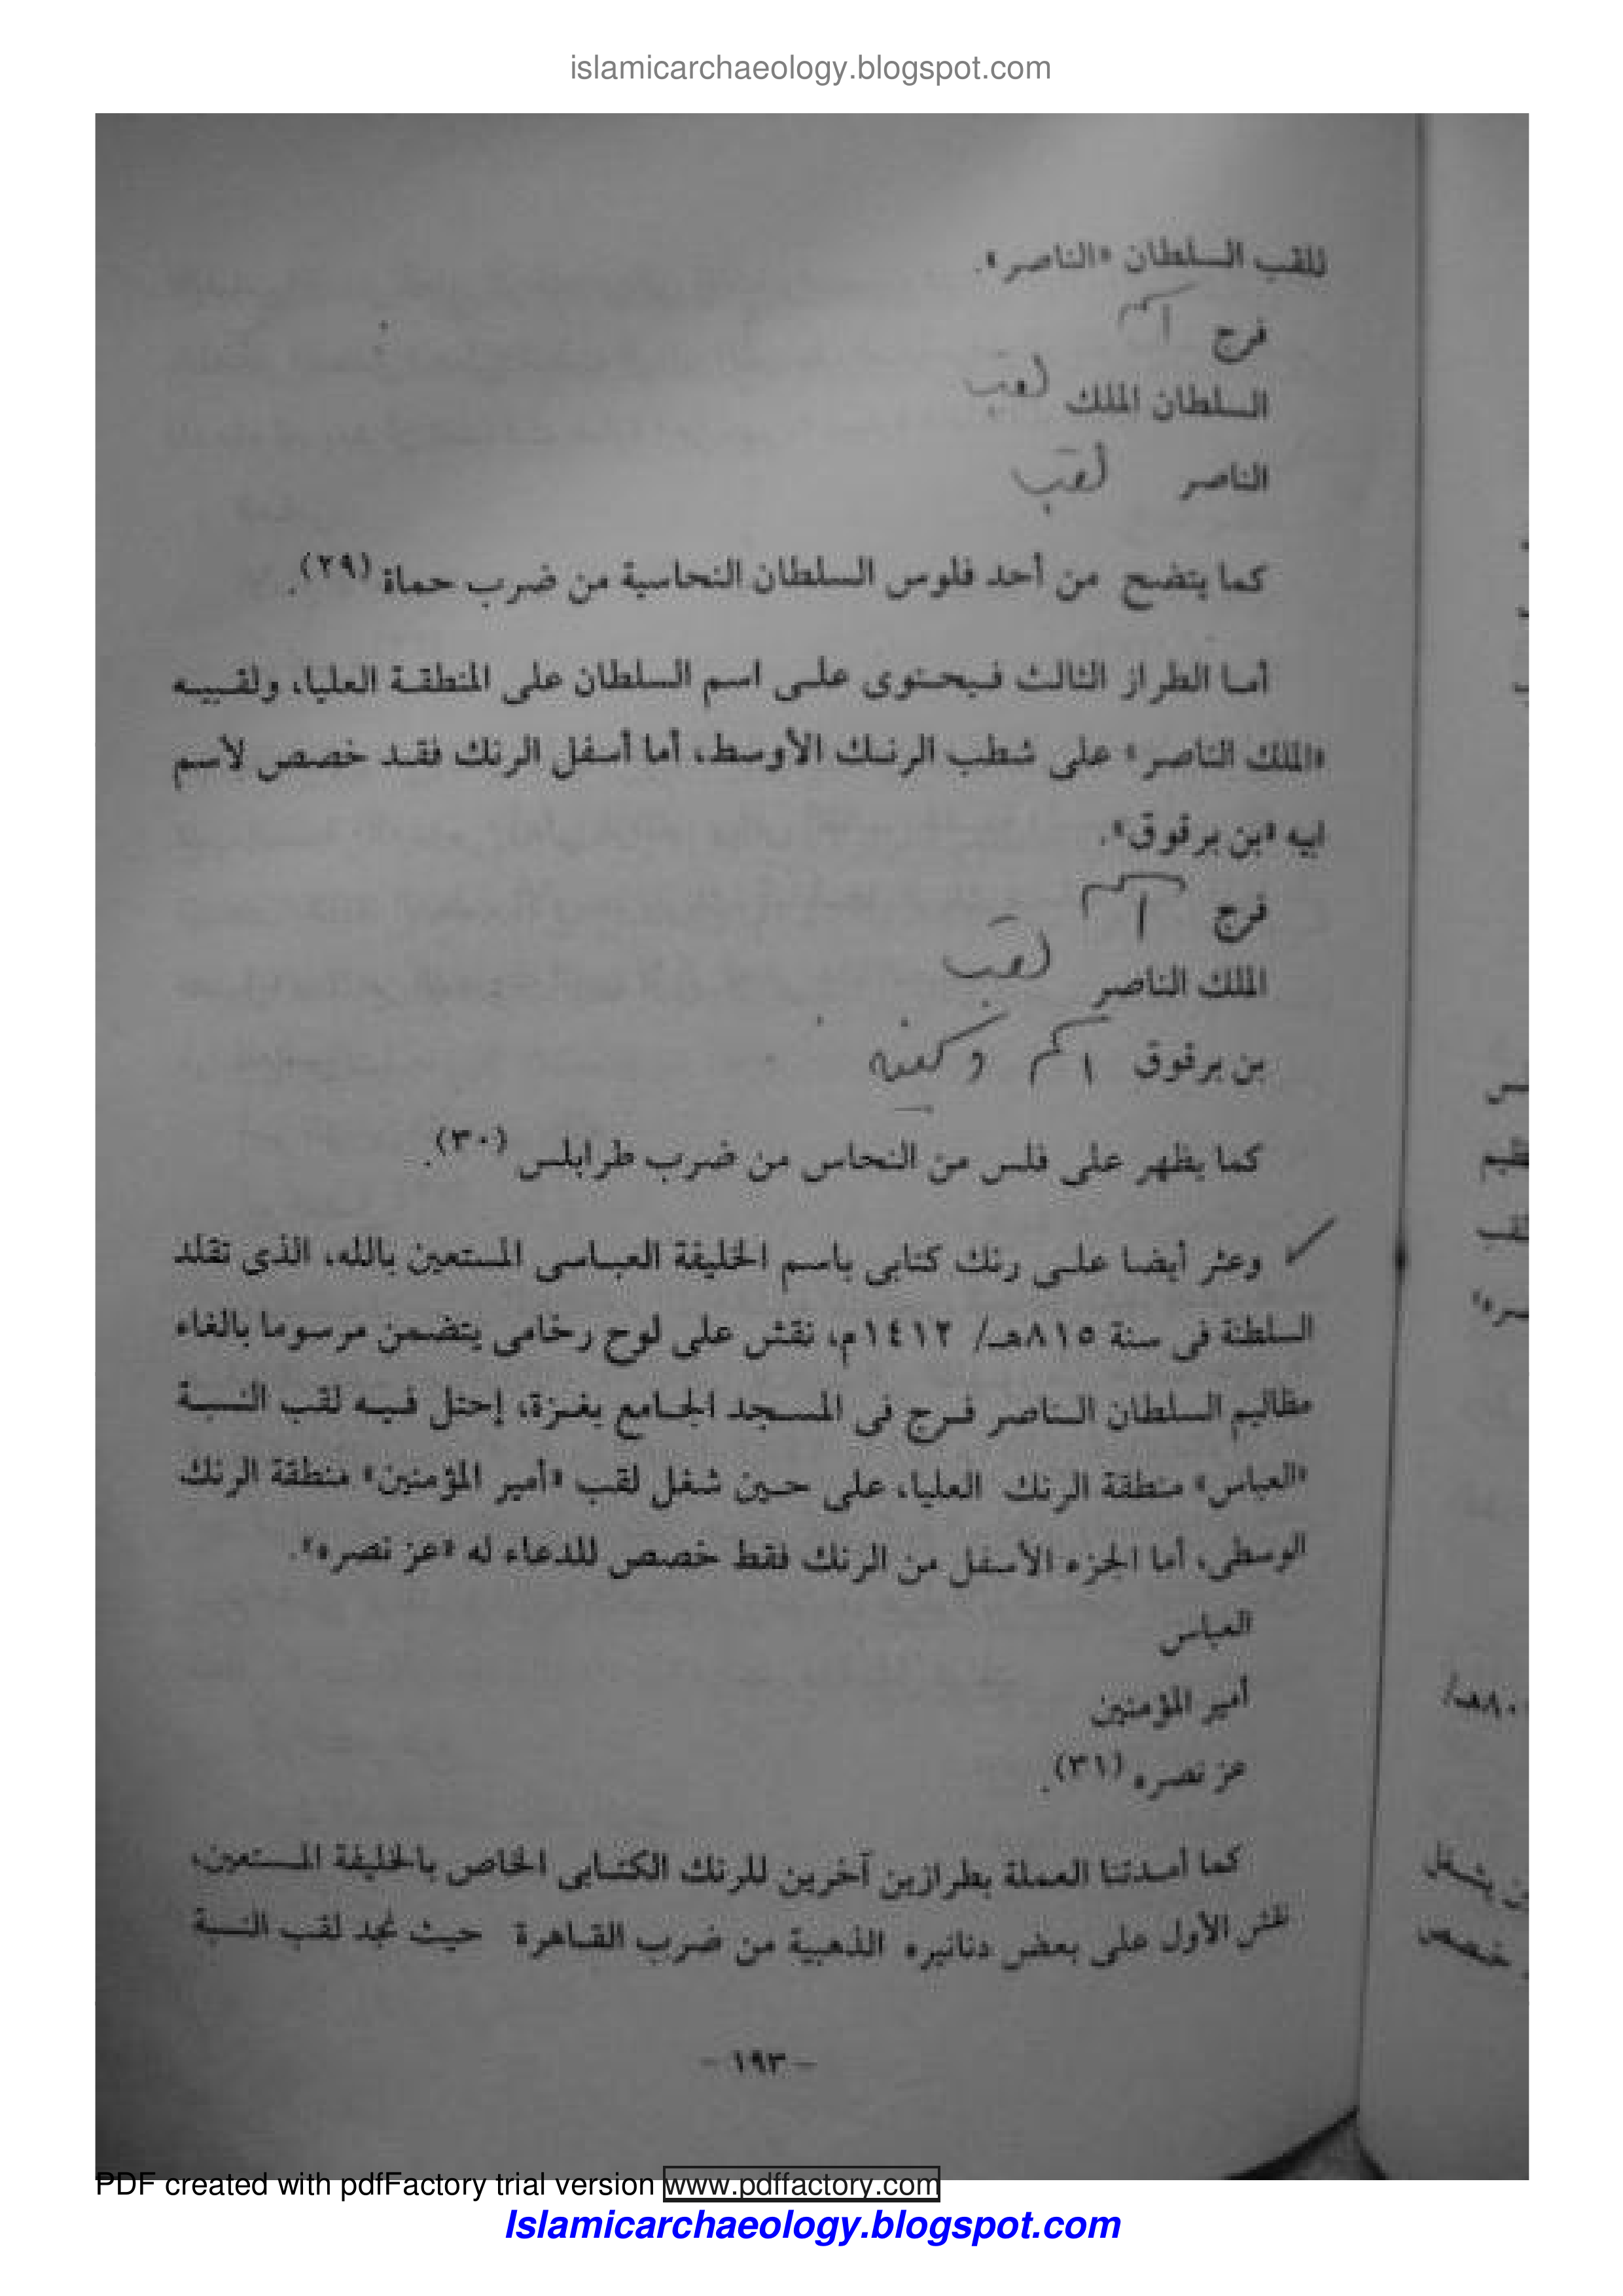 islamicarchaeology.blogspot.com
للقب السلطان «الناصر».
فرج اسم
السلطان الملك لقب
الناصر لقب
كما يتضح من أحد فلوس السلطان النحاسية من ضرب حماة (٢٩).
أما الطراز الثالث فيحتوى على اسم السلطان على المنطقة العليا، ولقبيه
«الملك الناصر» على شطب الرنك الأوسط، أما أسفل الرنك فقد خصص لأسم
ابيه «بن برقوق».
فرج اسم
الملك الناصر لقب
بن برقوق اسم وكنيه
كما يظهر على فلس من النحاس من ضرب طرابلس (٣٠).
وعثر أيضا على رنك كتابى باسم الخليفة العباسى المستعين بالله، الذى تقلد
السلطنة فى سنة ٨١٥هـ/ ١٤١٢م، نقش على لوح رخامى يتضمن مرسوما بالغاء
مظاليم السلطان الناصر فرج فى المسجد الجامع بغزة، إحتل فيه لقب النسبة
«العباس» منطقة الرنك العليا، على حين شغل لقب «أمير المؤمنين» منطقة الرنك
الوسطى، أما الجزء الأسفل من الرنك فقط خصص للدعاء له «عز نصره».
العباس
أمير المؤمنين
عز نصره (٣١).
كما أمدتنا العملة بطرازين آخرين للرنك الكتابى الخاص بالخليفة المستعين،
نقش الأول على بعض دنانيره الذهبية من ضرب القاهرة حيث نجد لقب النسبة
- ١٩٣ -
PDF created with pdfFactory trial version www.pdffactory.com
Islamicarchaeology.blogspot.com